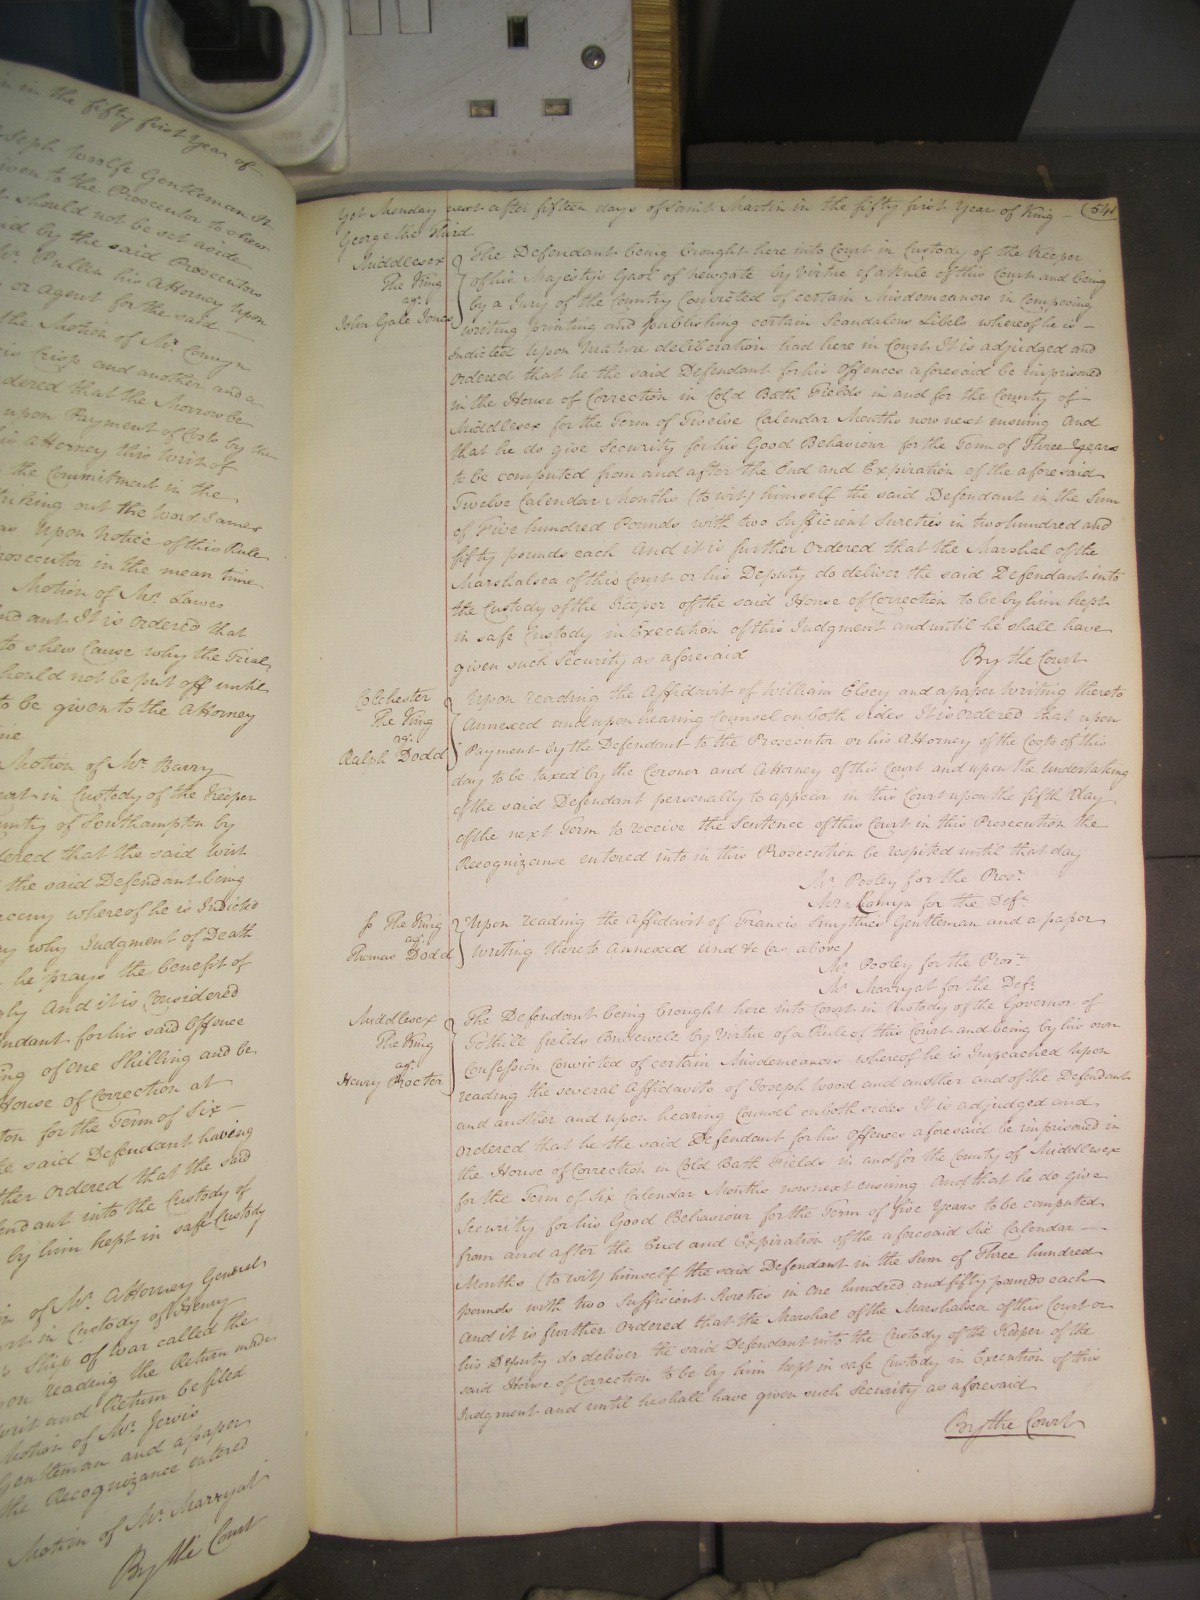 in in the fifty first Year of
Joseph Woolfe Gentleman It
given to the Prosecutor to shew
t should not be set aside
aid by the said Prosecutors
Mr. Pullen his Attorney Upon
or Agent for the said
the Motion of Mr. Comyn
is Crisp and another and a
dered that the Morrow be
upon Payment of Costs by the
his Attorney this Writ of
the Commitment in the
triking out the Word James
as Upon Notice of this Rule
rosecutor in the mean time
Motion of Mr. Lawes
nd ant It is ordered that
to shew Cause why the Trial
hould not be put off until
to be given to the Attorney
Motion of Mr. Barry
ourt in Custody of the Keeper
ounty of Southampton by
dered that the said Writ
the said Defendant being
rceny whereof he is Indicted
ay why Judgment of Death
he prays the benefit of
by And it is Considered
endant for his said Offence
ing of One Shilling and be
House of Correction at
ton for the Term of Six
he said Defendant having
ther ordered that the said
end ant into the Custody of
by him kept in safe Custody
n of Mr. Attorney General
rt in Custody of Henry
s Ship of War called the
on reading the Return made
Writ and Return be filed
Motion of Mr. Jervis
Gentleman and a paper
the Recognizance entered
Motion of Mr. Marryat
By the Court
Yet Monday next after fifteen days of Saint Martin in the fifty first Year of King (541
George the Third
Middlesex
The King
agt.
John Gale Jones
The Defendant being brought here into Court in Custody of the Keeper
of his Majestys Gaol of Newgate by Virtue of a Rule of this Court and being
by a Jury of the Country Convicted of certain Misdemeanors in Composing
writing printing and publishing certain Scandalous Libels whereof he is
Indicted Upon Mature deliberation had here in Court It is adjudged and
ordered that he the said Defendant for his Offences aforesaid be imprisoned
in the House of Correction in Cold Bath Fields in and for the County of
Middlesex for the Term of Twelve Calendar Months now next ensuing And
that he do give Security for his Good Behaviour for the Term of Three Years
to be computed from and after the End and Expiration of the aforesaid
Twelve Calendar Months (to wit) himself the said Defendant in the Sum
of Five hundred Pounds with two Sufficient Sureties in two hundred and
fifty pounds each And it is further Ordered that the Marshal of the
Marshalsea of this Court or his Deputy do deliver the said Defendant into
the Custody of the Keeper of the said House of Correction to be by him kept
in safe Custody in Execution of this Judgment and until he shall have
given such Security as aforesaid By the Court
Colchester
The King
agt.
Ralph Dodd
Upon reading the Affidavit of William Elsey and a paper Writing thereto
Annexed and upon hearing Counsel on both sides It is ordered that upon
Payment by the Defendant to the Prosecutor or his Attorney of the Costs of this
day to be taxed by the Coroner and Attorney of this Court and upon the undertaking
of the said Defendant personally to appear in this Court upon the fifth Day
of the next Term to receive the Sentence of this Court in this Prosecution the
Recognizance entered into in this Prosecution be respited until that day
Mr. Pooley for the Prosr.
Mr. Comyn for the Deft.
So The King
agt.
Thomas Dodd
Upon reading the Affidavit of Francis Smythies Gentleman and a paper
Writing thereto Annexed And &c (as above)
Mr. Pooley for the Prosr.
Mr. Marryat for the Deft.
Middlesex
The King
agt.
Henry Procter
The Defendant being brought here into Court in Custody of the Governor of
Tothill fields Bridewell by Virtue of a Rule of this Court and being by his own
Confession Convicted of certain Misdemeanors whereof he is Impeached Upon
reading the several Affidavits of Joseph Wood and another and of the Defendant
and another and upon hearing Counsel on both sides It is adjudged and
ordered that he the said Defendant for his Offences aforesaid be imprisoned in
the House of Correction in Cold Bath Fields in and for the County of Middlesex
for the Term of Six Calendar Months now next ensuing And that he do give
Security for his Good Behaviour for the Term of five Years to be computed
from and after the End and Expiration of the aforesaid Six Calendar
Months (to wit) himself the said Defendant in the Sum of Three hundred
pounds with two Sufficient Sureties in One hundred and fifty pounds each
And it is further Ordered that the Marshal of the Marshalsea of this Court or
his Deputy do deliver the said Defendant into the Custody of the Keeper of the
said House of Correction to be by him kept in safe Custody in Execution of this
Judgment and until he shall have given such Security as aforesaid
By the Court